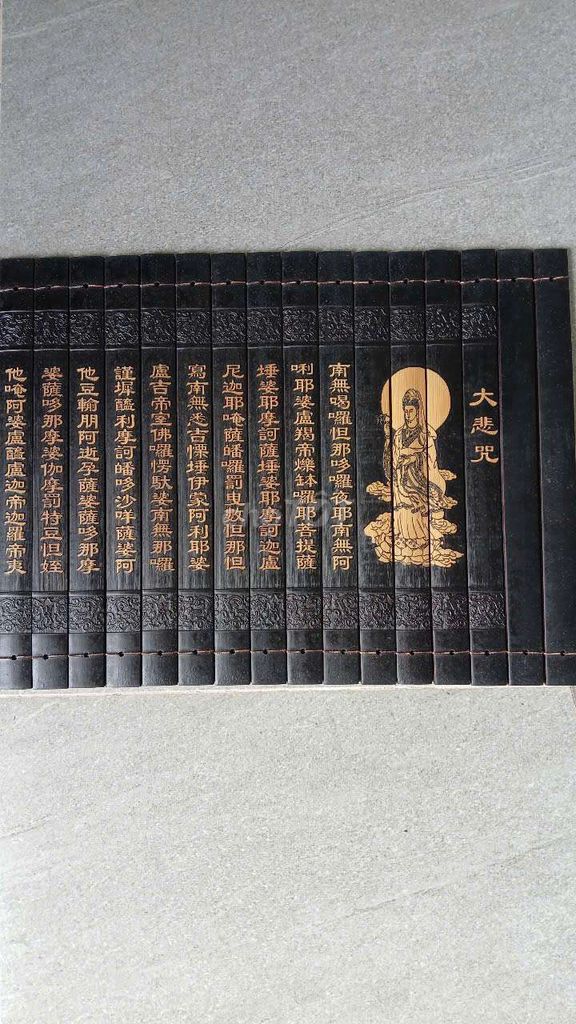 大悲咒
南無喝囉怛那哆囉夜耶南無阿
唎耶婆盧羯帝爍缽囉耶菩提薩
埵婆耶摩訶薩埵婆耶摩訶迦盧
尼迦耶唵薩皤囉罰曳數怛那怛
寫南無悉吉慄埵伊蒙阿利耶婆
盧吉帝室佛囉愣馱婆南無那囉
謹墀醯利摩訶皤哆沙咩薩婆阿
他豆輸朋阿逝孕薩婆薩哆那摩
婆薩哆那摩婆伽摩罰特豆怛姪
他唵阿婆盧醯盧迦帝迦羅帝夷